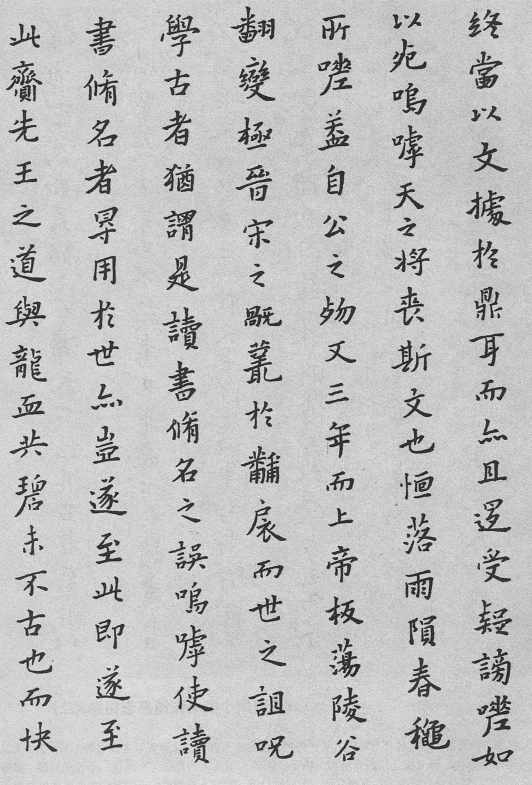 終當以文據於鼎耳而亦且遝受疑謗㘁如
以宛嗚嘑天之將喪斯文也恒落雨隕春
所㘁葢自公之歿又三年而上帝板蕩陵谷
翻變極晉宋之旤於黼扆而世之詛呪
學古者猶謂是讀書脩名之誤嗚嘑使讀
書脩名者用於世亦豈遂至此即遂至
此齎先王之道與龍血共碧未不古也而快